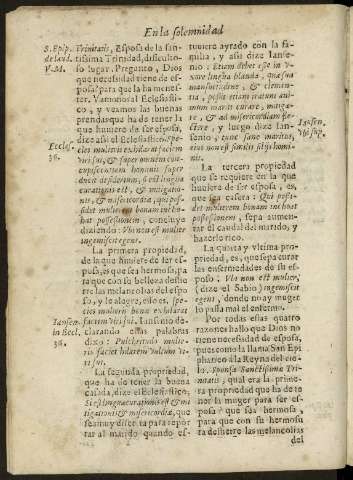 En la solemnidad
S. Epip.
de laud.
V. M.
Trinitatis, Esposa de la san-
tissima Trinidad, dificulto-
so lugar. Pregunto, Dios
que necesidad tiene de es-
posa? para que la ha menes-
ter. Vamonos al Eclesiasti-
co, y veamos las buenas
prendas que ha de tener la
que huuiere de ser esposa,
Eccles.
36.
dize asi el Eclesiastico, spe-
cies mulieris exhilarat faciem
viri sui, & super omnem con-
cupiscentiam hominis super
ducit desiderium, si est lingua
curationis est, & mitigatio-
nis, & misericordiæ, qui pos-
sidet mulierem bonam inchoat
possessionem, concluye
diziendo: Vbi non est mulier
ingemiscit egens.
La primera propriedad,
de la que huuiere de ser es-
posa, es que sea hermosa, pa-
ra que con su belleza destie-
rre las melancolias del espo-
so, y le alegre, esso es, spe-
cies mulieris bona exhilarat
Iansen.
in Eccl.
36.
faciem viri sui. Iansenio de-
clarando estas palabras
dixo: Pulchritudo mulie-
ris faciet hilarem vultum vi-
ri sui.
La segunda propriedad,
que ha de tener la buena
casada, dize el Eclesiastico,
Si est lingua curationis est & mi
tigationis & misericordiæ, que
sea muy discreta para repor
tar al marido quando es-
tuuiere ayrado con la fa-
milia, y assi dize Ianse-
nio: Etiam debet esse in v-
xore lingua blanda, quæ sua
mansuetudine, & clemen-
tia, possit etiam iratum ani-
mum mariti curare, mitiga-
re, & ad misericordiam fle-
ctere, y luego dize Ian-
Iansen.
vbi sup.
senio: tunc sane maritus,
non est similis filijs homi-
nis.
La tercera propriedad
que se requiere en la que
huuiere de ser esposa, es,
que sea casera: Qui possi-
det mulierem bonam inchoat
possessionem, sepa aumen-
tar el caudal del marido, y
hazerlo rico.
La quarta y vltima pro-
priedad, es, que sepa curar
las enfermedades de su es-
poso: Vbi non est mulier,
(dize el Sabio) ingemiscit
egens, donde no ay muger
lo passa mal el enfermo.
Por todas estas quatro
razones hallo que Dios no
tiene necesidad de esposa,
pues como la llama San Epi
phanio a la Reyna del cie-
lo. Sponsa Sanctissima Tri-
nitatis, qual era la primera
propriedad que ha de te
ner la muger para ser es-
posa? que sea hermosa,
para que con su hermosu
ra destierre las melancolias
del